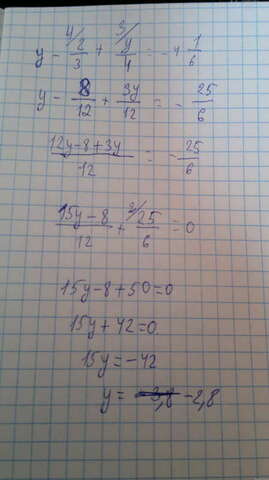 y - 4/ 2/3 + 3/ y/4 = -4 1/6
y - 8/12 + 3y/12 = - 25/6
12y-8+3y/12 = - 25/6
15y-8/12 + 2/ 25/6 = 0
15y-8+50=0
15y+42=0
15y=-42
y= -3,8 -2,8